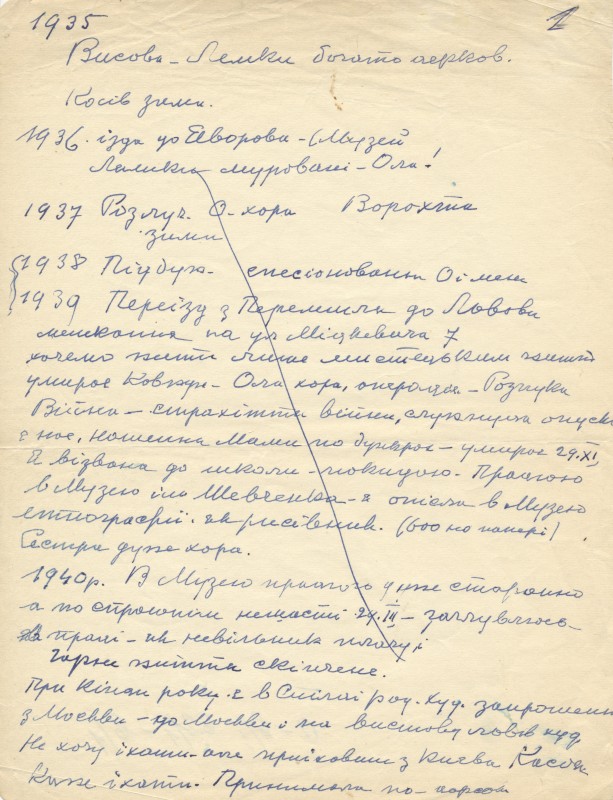 1935
1
Висова - Лемки богато церков.
Косів зима.
1936. їзда до Яворова - (Музей
муровані - Оля!
1937 Розлуч. О - хора Ворохта
зима
1938 Підбуж -
1939 Переїзд з Перемишля до Львова
мешкання на ул Міцкевича 7
хочемо жити лише мистецьким життя
умирає Ковжун - Оля хора, операція - Розпука
Війна - страхіття війни, служниця опуск
є нас, Мами по - умирає 29.XI.
Я візвана до школи - покидаю. Працюю
в Музею ім Шевченка - а опісля в Музею
етнографії як рисівник. (бо но папері)
Сестра дуже хора.
1940 р. В Музею працюю дуже старанно
а по страшнім нещасті 29.III -
праці - як невільник плачу і
життя скінчене.
При кінци року є в Спілці рад. худ. запрошення
з Москви - до Москви на виставу львів худ
Не хочу їхати - але приїхавши з Києва Касіян
Каже їхати. Принимали по -